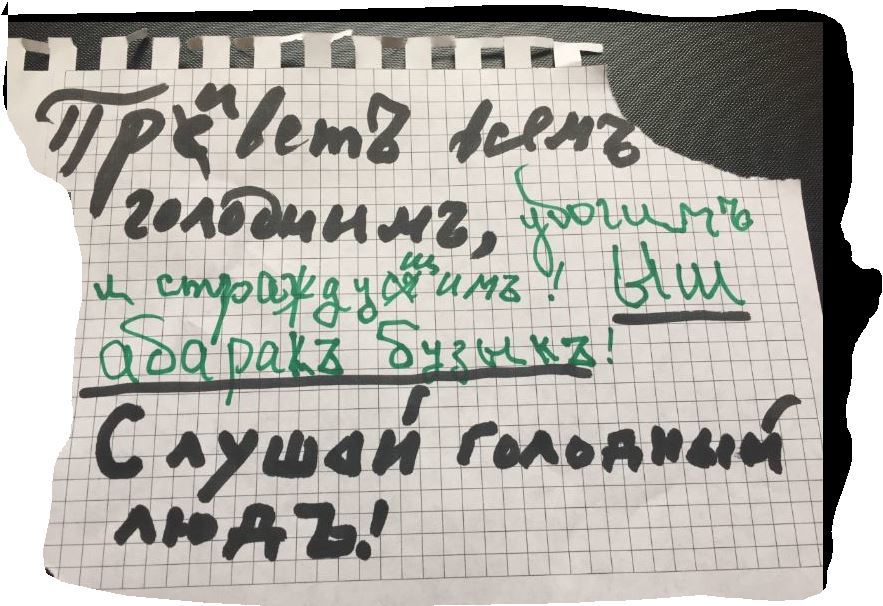 Приветъ всемъ
голоднимъ, убогимъ
и страждущимъ! Ыш
абаракъ бузыкъ!
Слушай голодный
людъ!